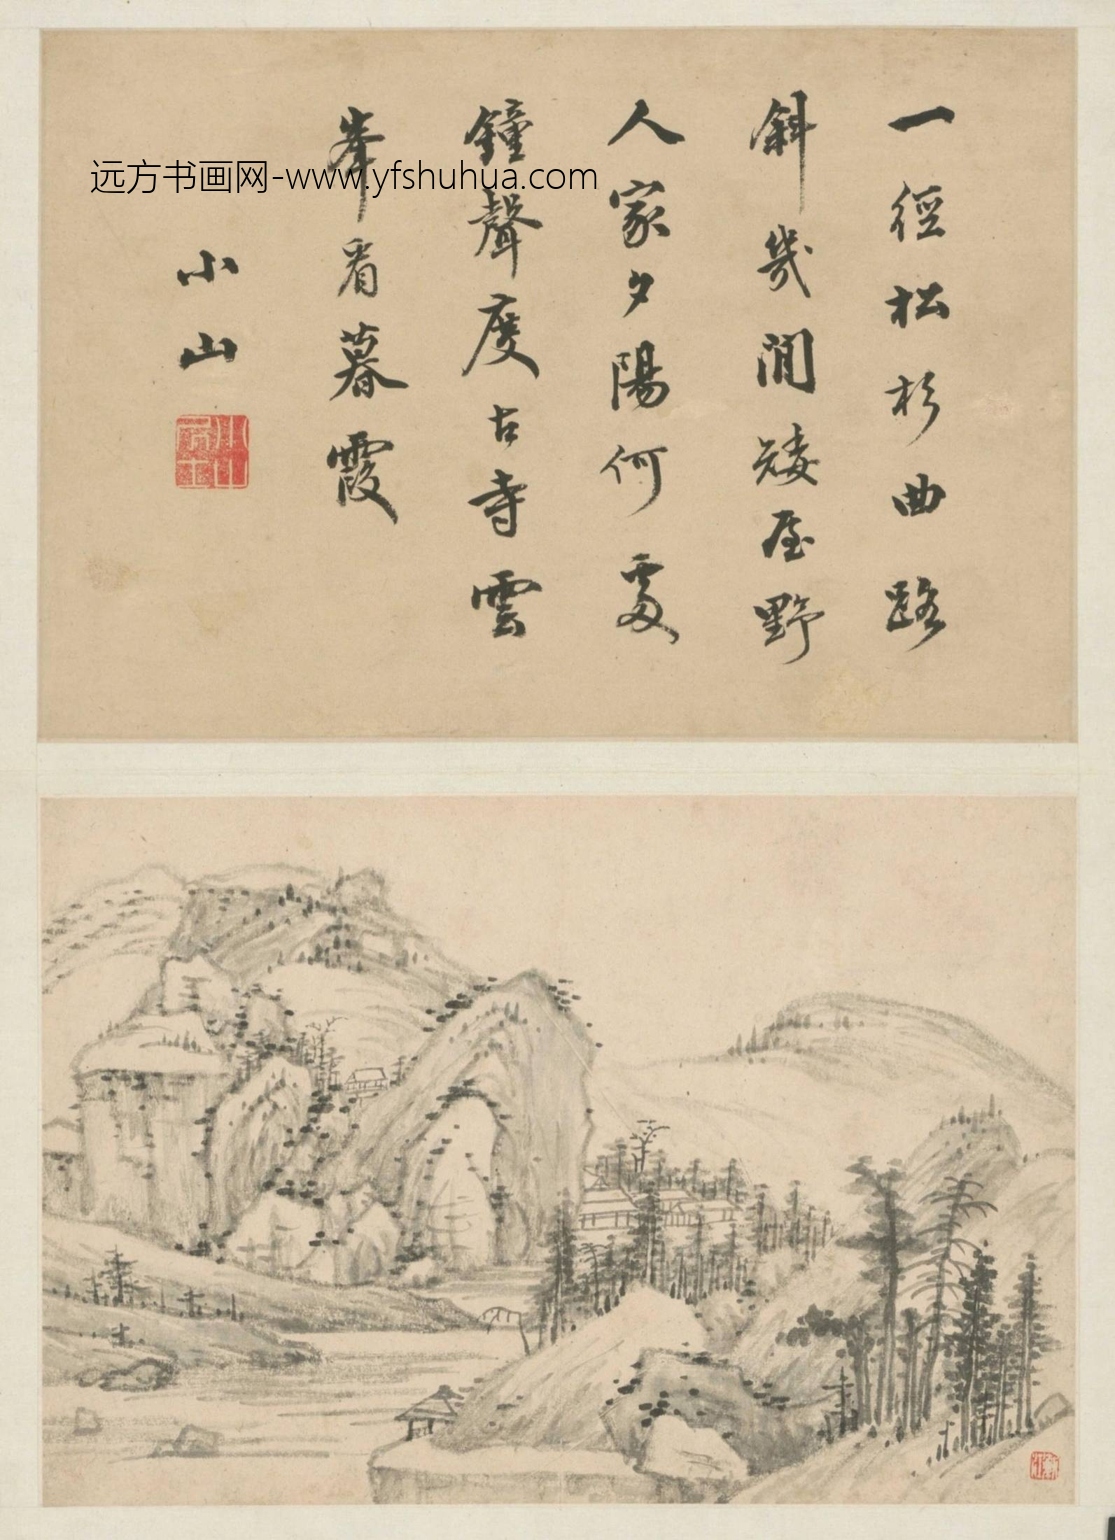 一徑松杉曲路
斜幾間矮屋野
人家夕陽何處
鐘聲度古寺雲
峯看暮霞
小山
远方书画网-www.yfshuhua.com